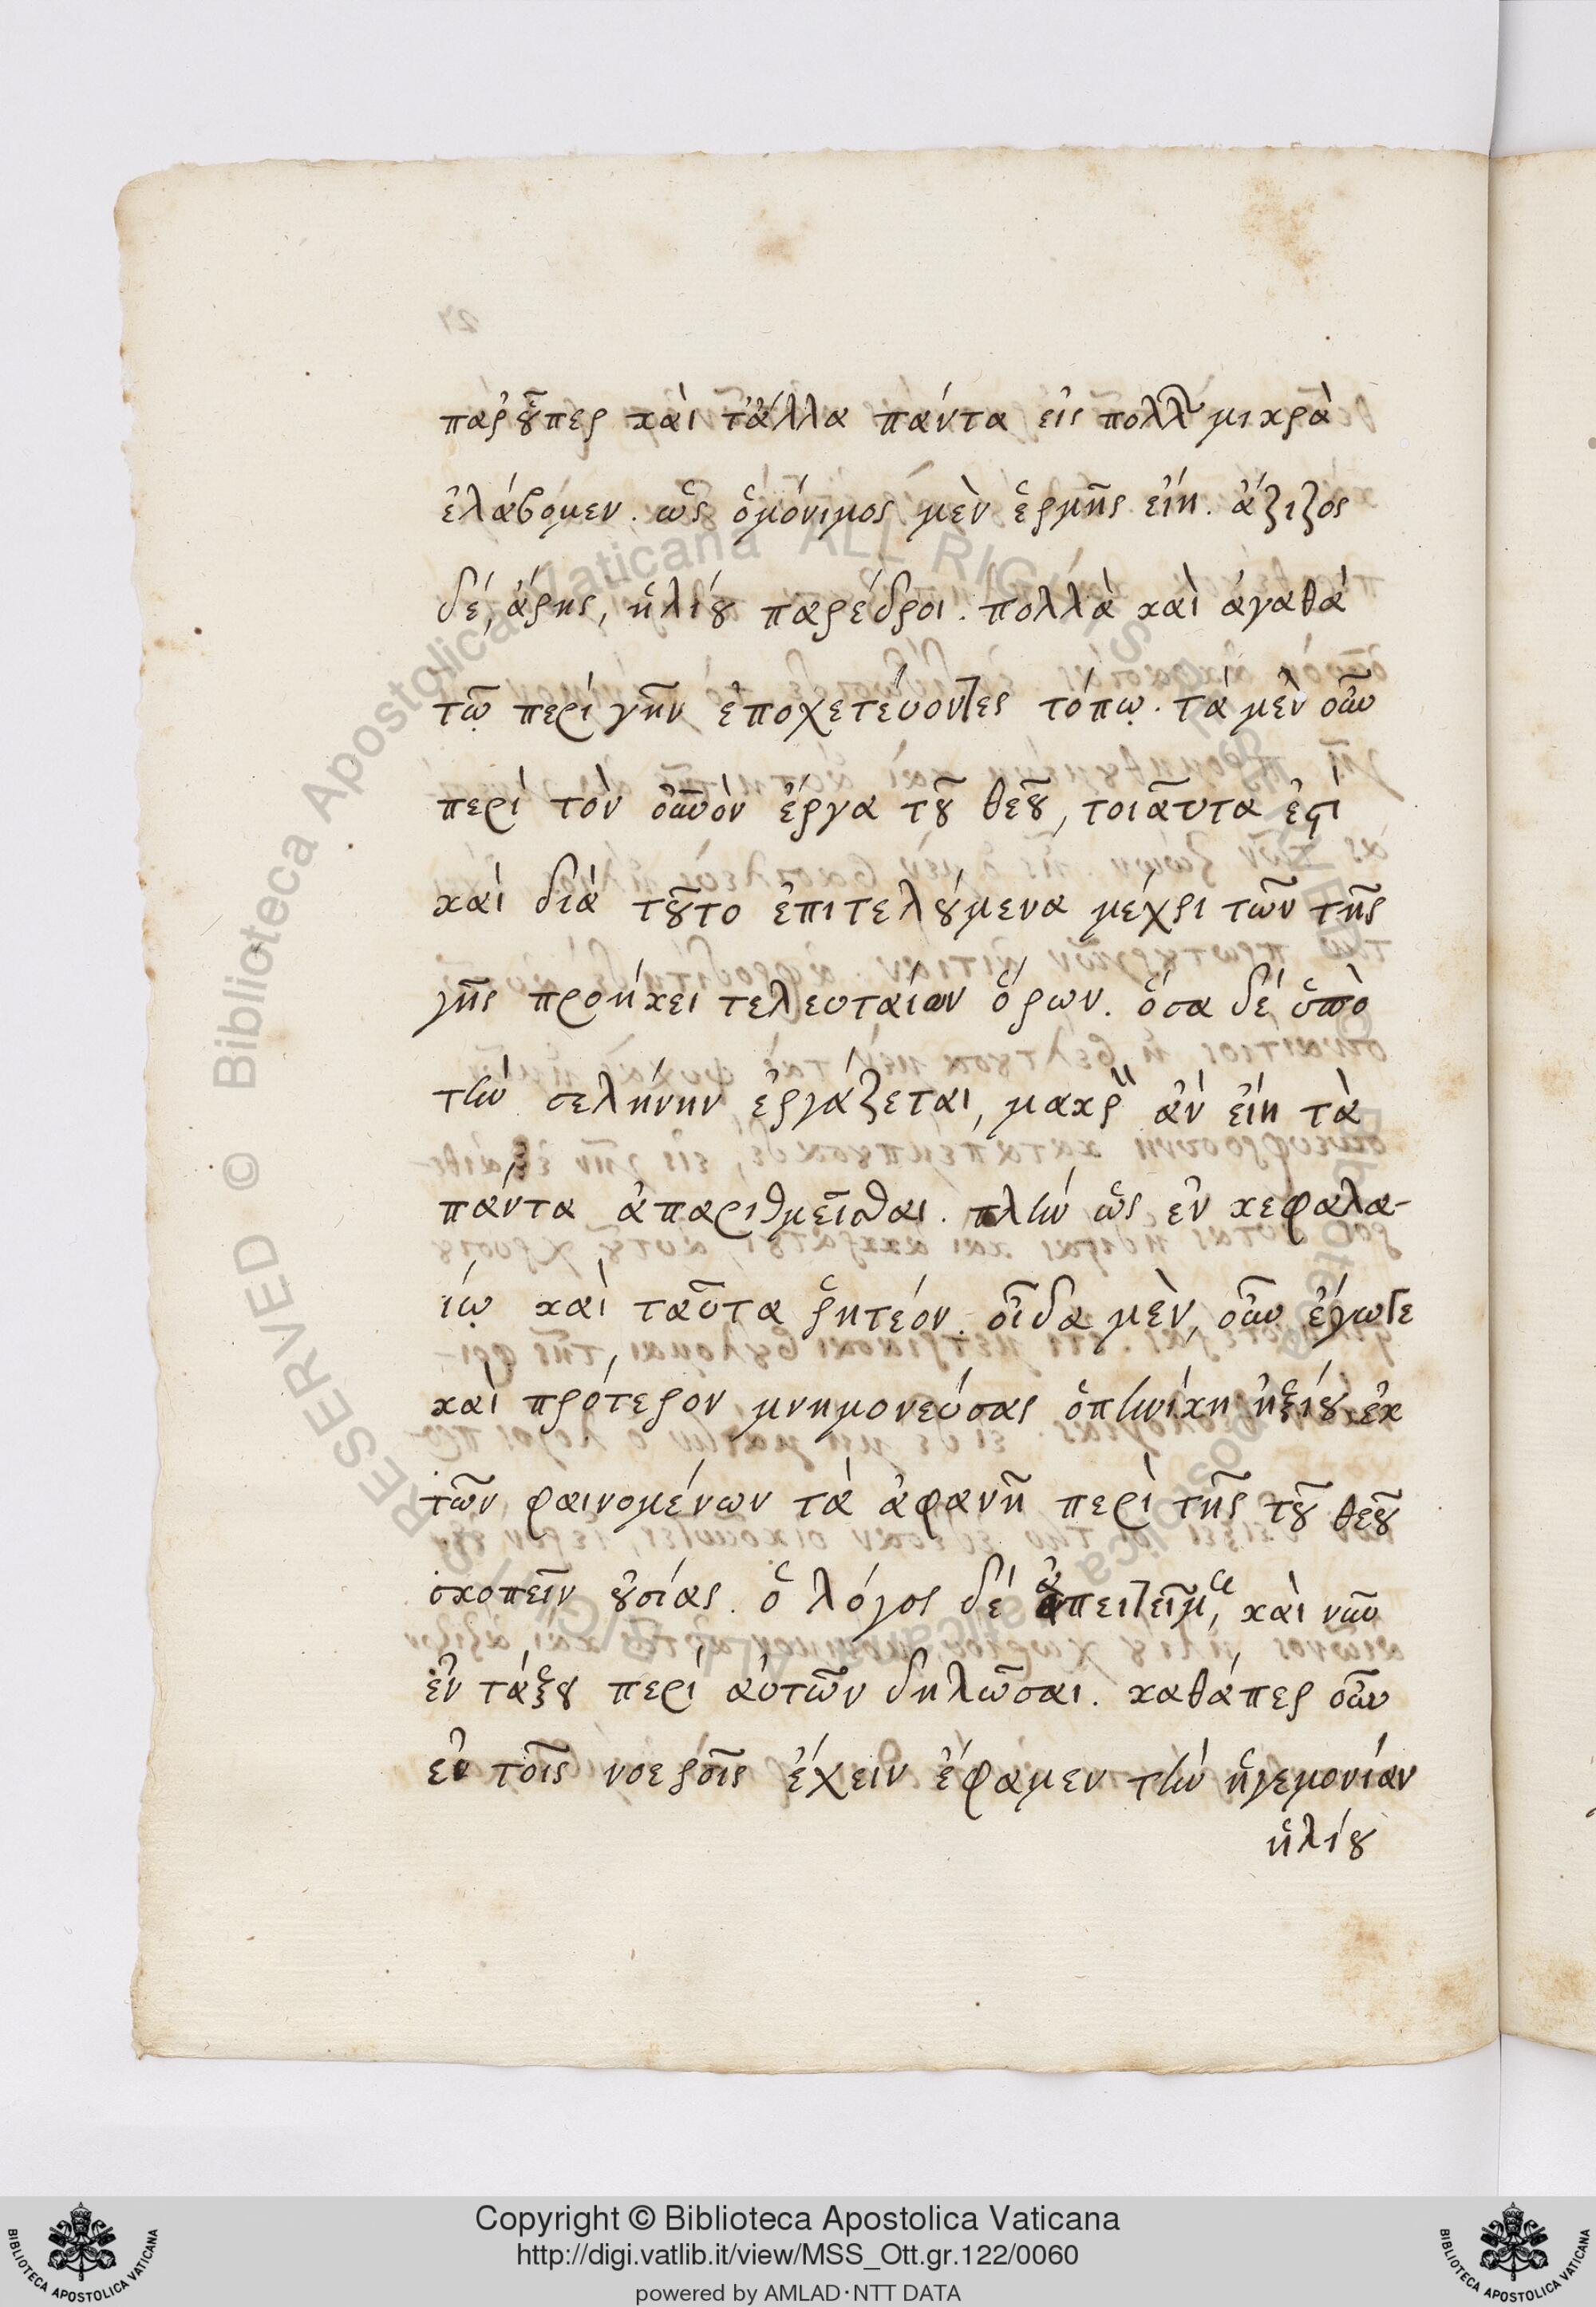 παρ' οὗπερ καὶ τἄλλα πάντα εἰς πολλῶν μικρὰ
ἐλάβομεν. ὡς ὁμόνιμος μὲν ἑρμῆς εἴη. ἄζιζος
δέ, ἄρης, ἡλίου παρέδροι. πολλὰ καὶ ἀγαθὰ
τῷ περὶ γῆν ἐποχετεύοντες τόπῳ. τὰ μὲν οὖν
περὶ τὸν οὐνὸν ἔργα τοῦ θεοῦ, τοιαῦτα ἐστὶ
καὶ διὰ τοῦτο ἐπιτελούμενα μέχρι τῶν τῆς
γῆς προήκει τελευταίων ὅρων. ὅσα δὲ ὑπὸ
τὴν σελήνην ἐργάζεται, μακρὸν ἂν εἴη τὰ
πάντα ἀπαριθμεῖσθαι. πλὴν ὡς ἐν κεφαλα-
ίῳ καὶ ταῦτα ῥητέον. οἶδα μὲν, οὖν ἔγωγε
καὶ πρότερον μνημονεύσας ὁπηνίκη ἠξίου ἐκ
τῶν φαινομένων τὰ ἀφανῆ περὶ τῆς τοῦ θεοῦ
σκοπεῖν οὐσίας. ὁ λόγος δὲ ἀπειτεῖμε, καὶ νῦν
ἐν τάξει περὶ αὐτῶν δηλῶσαι. καθάπερ οὖν
ἐν τοῖς νοεροῖς ἔχειν ἔφαμεν τὴν ἡγεμονίαν
ἡλίου
Copyright © Biblioteca Apostolica Vaticana
http://digi.vatlib.it/view/MSS_Ott.gr.122/0060
powered by AMLAD·NTT DATA
BIBLIOTECA APOSTOLICA VATICANA
BIBLIOTECA APOSTOLICA VATICANA